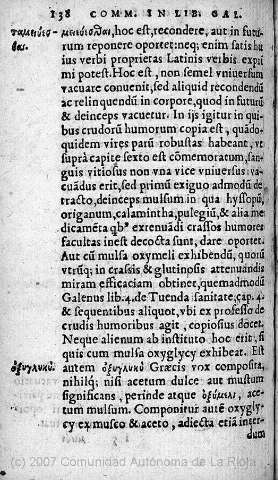 138 COMM. IN LIB. GAL.
ταμιεύεσ-
θαι.
ταμιεύεσθαι, hoc est, recondere, aut in futu
rum reponere oportet: neq; enim satis hu
ius verbi proprietas Latinis verbis expri
mi potest. Hoc est, non semel vniuersum
vacuare conuenit, sed aliquid recondendũ
ac relinquendũ in corpore, quod in futurũ
& deinceps vacuetur. In ijs igitur in qui-
bus crudorũ humorum copia est, quãdo-
quidem vires parũ robustas habeant, vt
suprà capite sexto est cõmemoratum, san-
guis vitiosus non vna vice vniuersus va-
cuãdus erit, sed primũ exiguo admodũ de
tracto, deinceps mulsum in qua hyssopũ,
origanum, calamintha, pulegiũ, & alia me
dicamẽta qb⁹ extenuãdi crassos humores
facultas inest decocta sunt, dare oportet.
Aut cũ mulsa oxymeli exhibendũ, quorũ
vtrũq; in crassis & glutinosis attenuandis
miram efficaciam obtinet, quemadmodũ
Galenus lib. 4. de Tuenda sanitate, cap. 4.
& sequentibus aliquot, vbi ex professo de
crudis humoribus agit, copiosius docet.
Neque alienum ab instituto hoc erit, si
quis cum mulsa oxyglycy exhibeat. Est
ὀξυγλυκύ.
autem ὀξυγλυκὺ Græcis vox composita,
nihilq; nisi acetum dulce aut mustum
significans, perinde atque ὀξύμελι, ace-
tum mulsum. Componitur autẽ oxygly-
cy ex musto & aceto, adiecta etiã inter-
dum
(c) 2007 Comunidad Autónoma de La Rioja